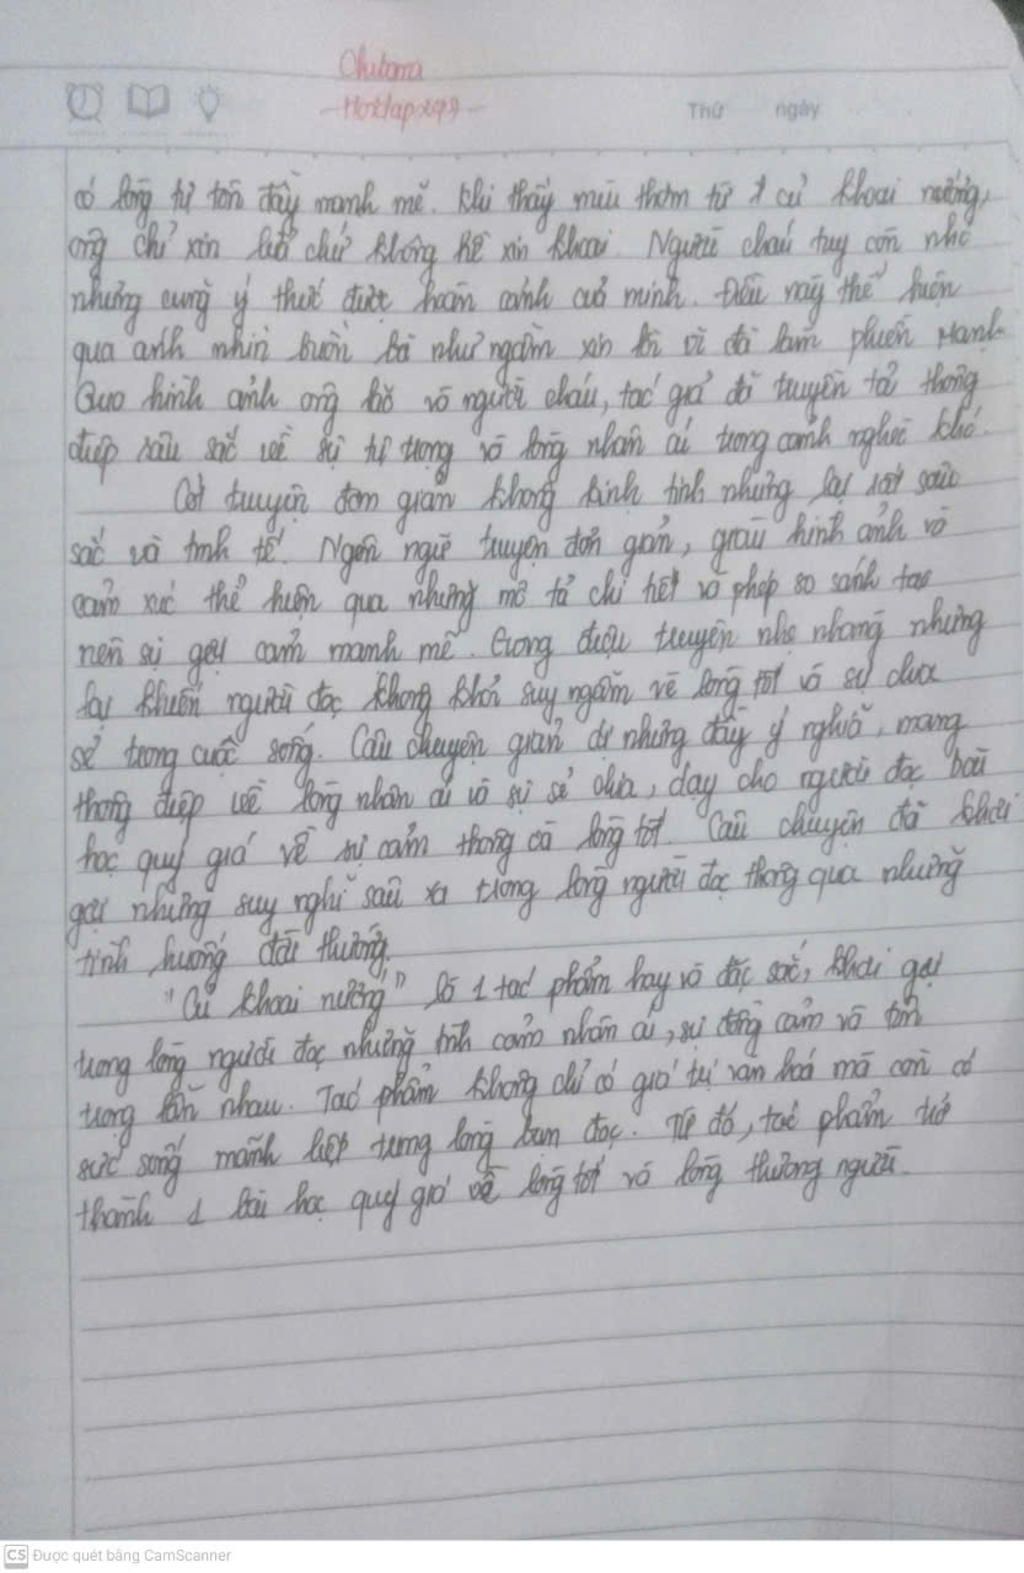 Thứ ngày
có lòng tự tôn đầy manh mẽ. Khi thấy mùi thơm từ 1 củ khoai nướng,
ông chỉ xin lửa chứ không hề xin khoai. Người cháu tuy còn nhỏ
nhưng cũng ý thức được hoàn cảnh của mình. Điều này thể hiện
qua ánh nhìn buồn bã như ngầm xin lỗi vì đã làm phiền Mạnh.
Qua hình ảnh ông lão và người cháu, tác giả đã truyền tải thông
điệp sâu sắc về sự tự trọng và lòng nhân ái trong cảnh nghèo khó.
Cốt truyện đơn giản không kịch tính nhưng lại rất sâu
sắc và tinh tế. Ngôn ngữ truyện đơn giản, giàu hình ảnh và
cảm xúc thể hiện qua những mô tả chi tiết và phép so sánh tạo
nên sự gợi cảm mạnh mẽ. Giọng điệu truyện nhẹ nhàng nhưng
lại khiến người đọc không khỏi suy ngẫm về lòng tốt và sự chia
sẻ trong cuộc sống. Câu chuyện giản dị nhưng đầy ý nghĩa, mang
thông điệp về lòng nhân ái và sự sẻ chia, dạy cho người đọc bài
học quý giá về sự cảm thông và lòng tốt. Câu chuyện đã khơi
gợi những suy nghĩ sâu xa trong lòng người đọc thông qua những
tình huống đời thường.
"Củ khoai nướng" là 1 tác phẩm hay và đặc sắc, khơi gợi
trong lòng người đọc những tình cảm nhân ái, sự đồng cảm và tôn
trọng lẫn nhau. Tác phẩm không chỉ có giá trị văn hoá mà còn có
sức sống mãnh liệt trong lòng bạn đọc. Từ đó, tác phẩm trở
thành 1 bài học quý giá về lòng tốt và lòng thương người.
CS Được quét bằng CamScanner